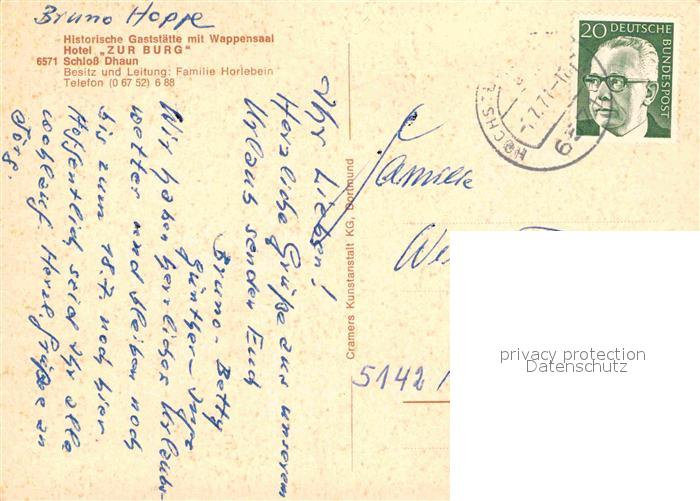 Bruno Hoppe
Historische Gaststätte mit Wappensaal
Hotel „ZUR BURG"
6571 Schloß Dhaun
Besitz und Leitung: Familie Horlebein
Telefon (0 67 52) 6 88
Ihr Lieben!
Herzliche Grüße aus unserem
Urlaub senden Euch
Bruno - Betty
Günther - Inge
Wir haben herrliches Urlaubs-
wetter und bleiben noch
bis zum 18.7. noch hier
Hoffentlich seid Ihr alle
wohlauf. Herzl. Grüße an
Jörg.
Cramers Kunstanstalt KG, Dortmund
20 DEUTSCHE
BUNDESPOST
Familie
5142
privacy protection
Datenschutz